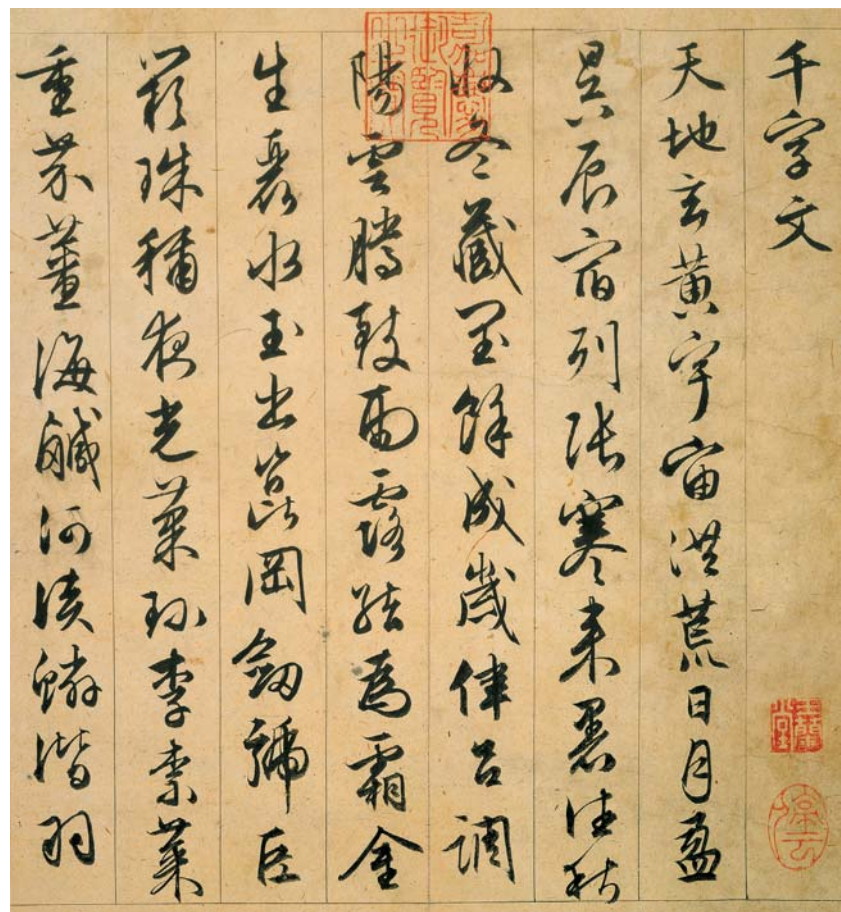 千字文
天地玄黃宇宙洪荒日月盈
昃辰宿列張寒來暑往秋
收冬藏閏餘成歲律呂調
陽雲騰致雨露結為霜金
生麗水玉出崑岡劒號巨
闕珠稱夜光菓珍李柰菜
重芥薑海鹹河淡鱗潛羽
嘉慶御覽之寶